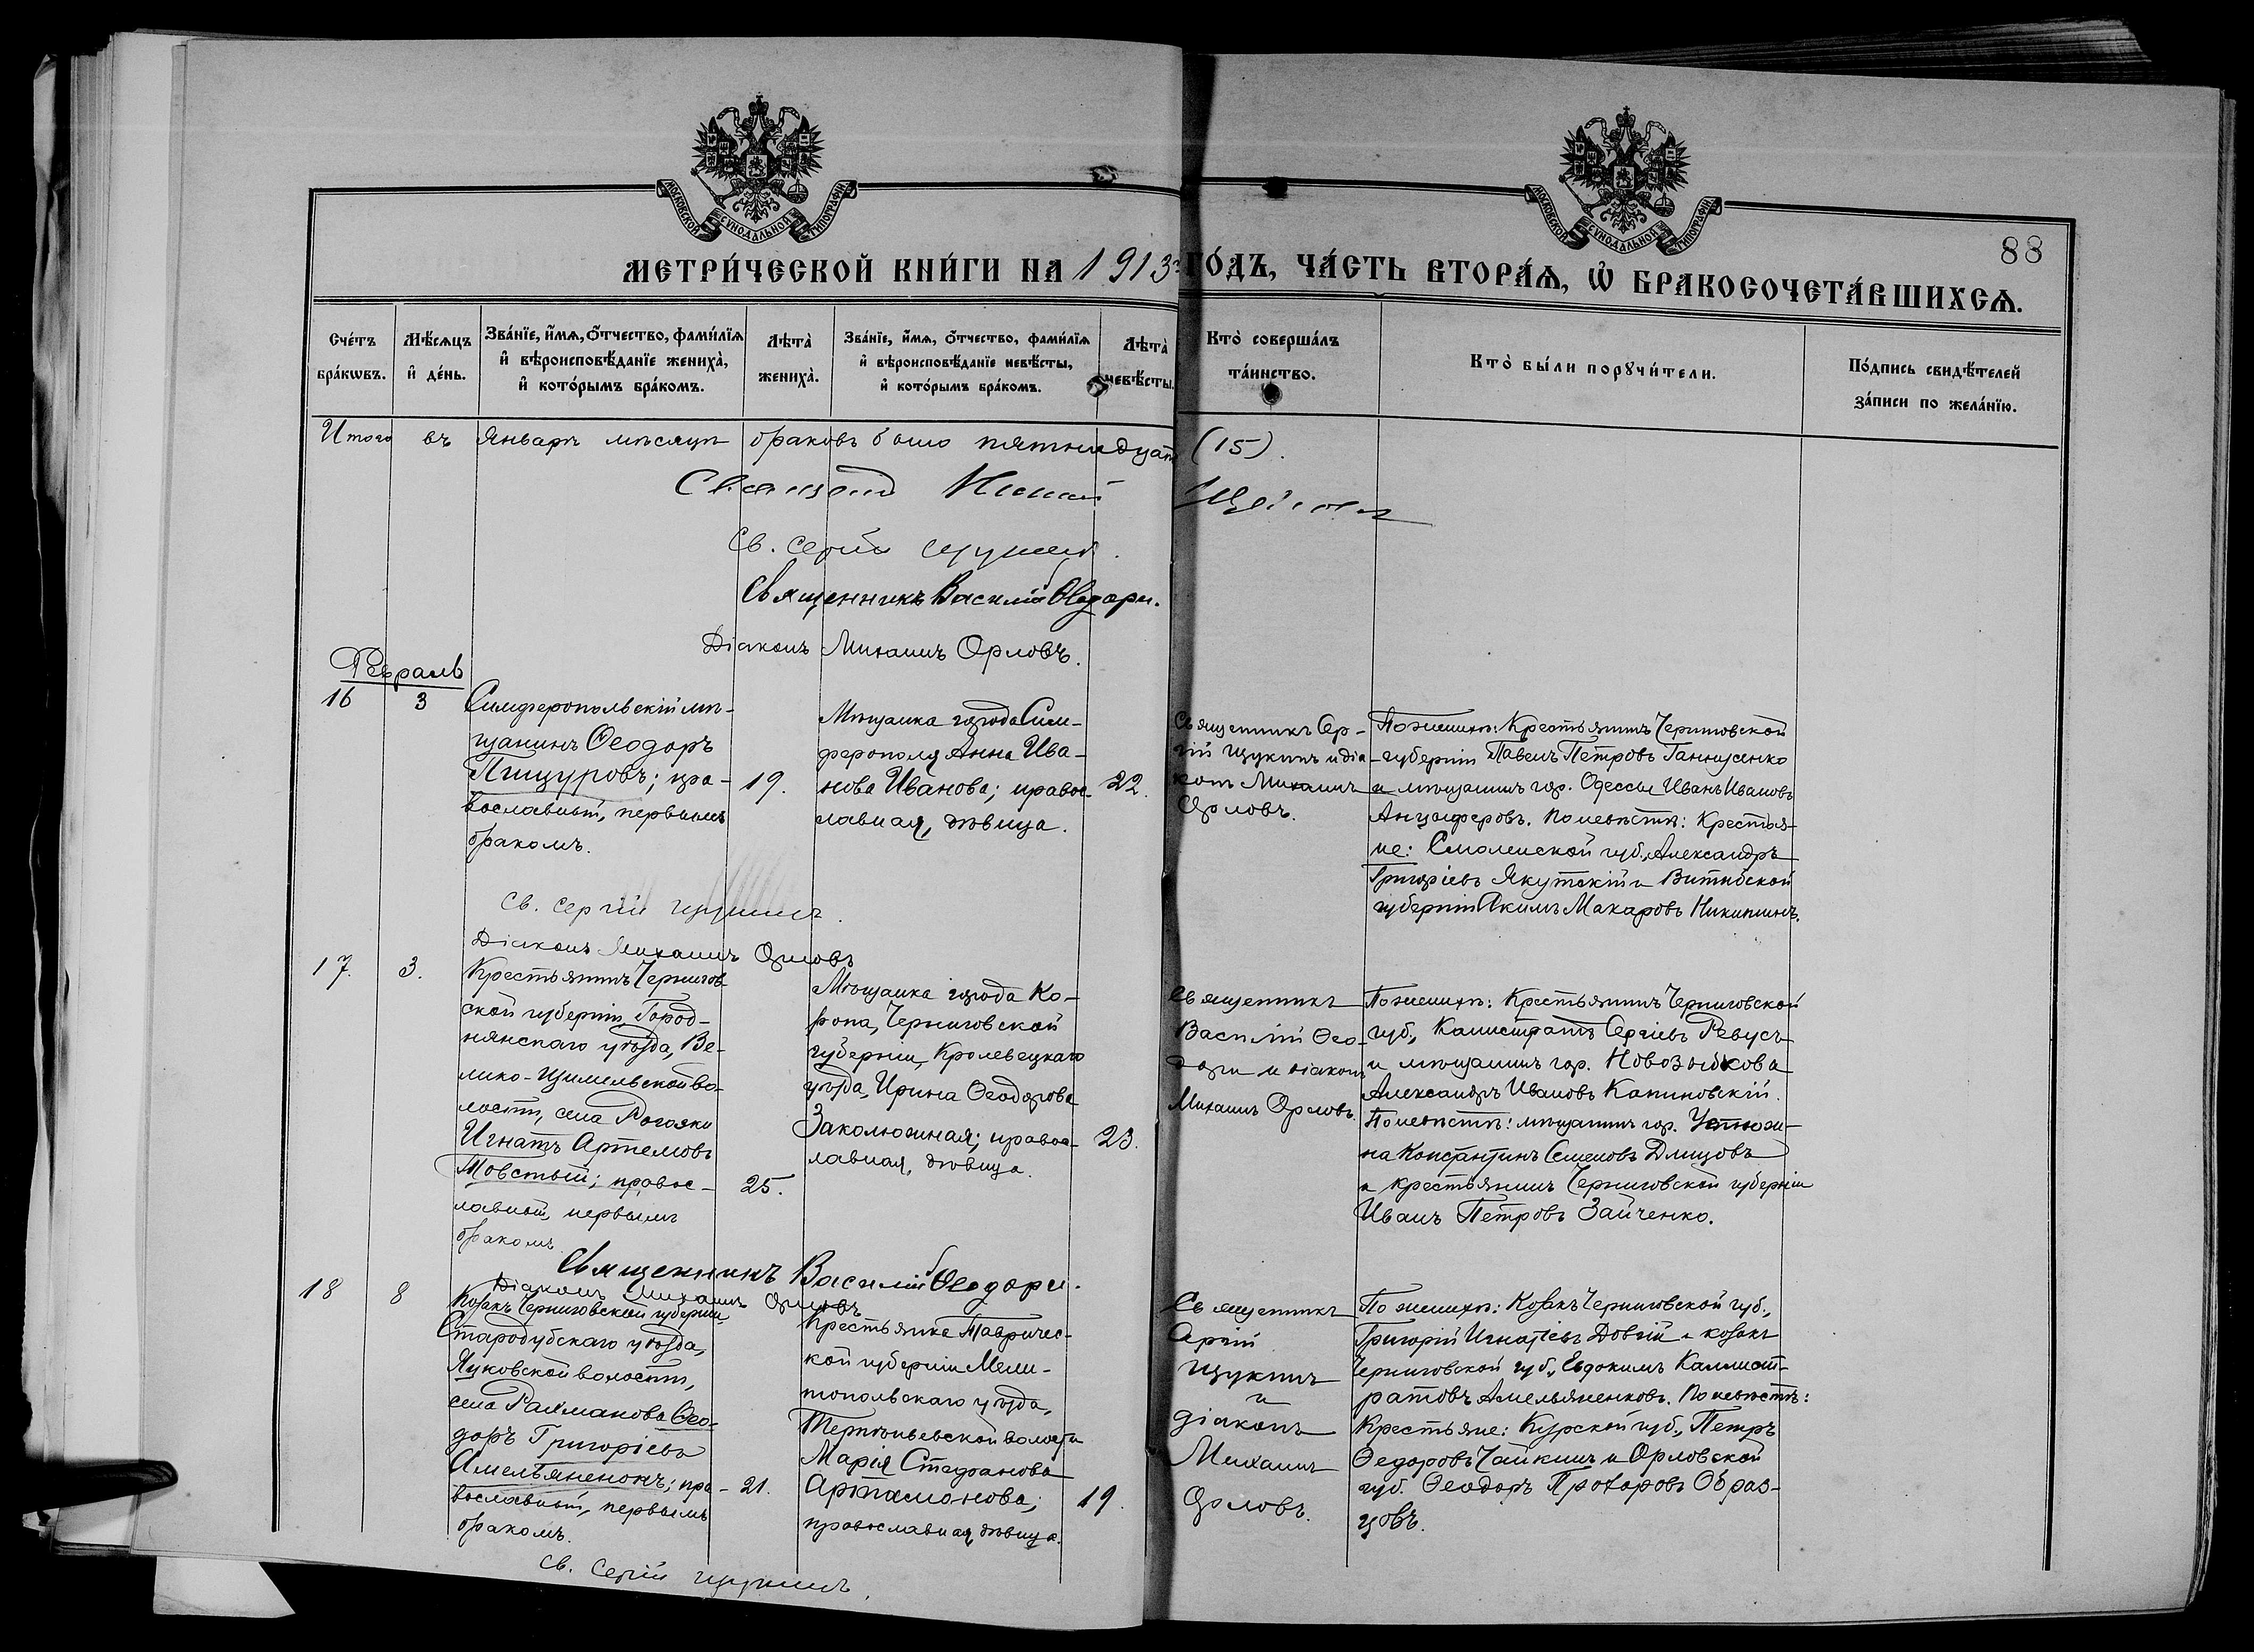 МОСКОВСКОЙ СУНОДАЛЬНОЙ ТИПОГРАФІИ
МОСКОВСКОЙ СУНОДАЛЬНОЙ ТИПОГРАФІИ
88
МЕТРИ́ЧЕСКОЙ КНИ́ГИ НА 1913 ГО́ДЪ, ЧА́СТЬ ВТОРА́Ѧ, Ѡ҆ БРАКОСОЧЕТА́ВШИХСѦ.
Сче́тъ
бра́кѡвъ.
Мѣ́сѧцъ
и҆ де́нь.
Зва́нїе, и҆́мѧ, о҆́тчество, фами́лїѧ
и҆ вѣроисповѣ́данїе жениха̀,
и҆ кото́рымъ бра́комъ.
Лѣта̀
жениха̀.
Зва́нїе, и҆́мѧ, о҆́тчество, фами́лїѧ
и҆ вѣроисповѣ́данїе невѣ́сты,
и҆ кото́рымъ бра́комъ.
Лѣта̀
невѣ́сты.
Кто̀ соверша́лъ
та́инство.
Кто̀ бы́ли порꙋчи́тели.
По́дпись свидѣ́телей
за́писи по жела́нїю.
Итого въ Январѣ мѣсяцѣ браковъ было пятнадцать (15).
Св. Сергій Щукинъ.
Священникъ Василій Ѳеодори.
Діаконъ Михаилъ Орловъ.
Февраль
16
3
Симферопольскій мѣ-
щанинъ Ѳеодоръ
Пищуровъ; пра-
вославный, первымъ
бракомъ.
19.
Мѣщанка города Сим-
ферополя Анна Ива-
нова Иванова; правос-
лавная, дѣвица.
22.
Священникъ Сер-
гій Щукинъ и діа-
конъ Михаилъ
Орловъ.
По женихѣ: Крестьянинъ Черниговской
губерніи Павелъ Петровъ
и мѣщанинъ гор. Одессы Иванъ Ивановъ
Анцыферовъ. По невѣстѣ: Крестья-
не: Смоленской губ., Александръ
Григоріевъ Якутскій и Витебской
губерніи Якимъ Макаровъ Никитинъ.
Св. Сергій Щукинъ.
Діаконъ Михаилъ Орловъ
17.
3.
Крестьянинъ Чернигов-
ской губерніи, Город-
нянскаго уѣзда, Ве-
лико-Щимельской во-
лости, села Рогозки
Игнатъ Артемовъ
Товстый; правос-
лавный, первымъ
бракомъ.
25.
Мѣщанка города Ко-
ропа, Черниговской
губерніи, Кролевецкаго
уѣзда, Ирина Ѳеодорова
Заколюжная; правос-
лавная, дѣвица.
23.
Священникъ
Василій Ѳео-
дори и діаконъ
Михаилъ Орловъ.
По женихѣ: Крестьянинъ Черниговской
губ., Калистратъ Сергіевъ Ревусъ
и мѣщанинъ гор. Новозыбкова
Александръ Ивановъ Калиновскій.
По невѣстѣ: мѣщанинъ гор. Устюж-
на Константинъ Семеновъ
и крестьянинъ Черниговской губерніи
Иванъ Петровъ Зайченко.
Священникъ Василій Ѳеодори.
Діаконъ Михаилъ Орловъ
18
8
Козакъ Черниговской губерніи,
Стародубскаго уѣзда,
Яцковской волости,
села Рахманова Ѳео-
доръ Григоріевъ
Амельяненокъ; пра-
вославный, первымъ
бракомъ.
21.
Крестьянка Тавричес-
кой губерніи Мели-
топольскаго уѣзда,
Терпѣньевской волости
Марія Стефанова
Артамонова;
православная дѣвица.
19.
Священникъ
Сергій
Щукинъ
и
діаконъ
Михаилъ
Орловъ.
По женихѣ: Козакъ Черниговской губ.,
Григорій Игнатіевъ Довгій и козакъ
Черниговской губ., Евдокимъ Каллист-
ратовъ Амельяненковъ. По невѣстѣ:
Крестьяне: Курской губ., Петръ
Ѳедоровъ Чайкинъ и Орловской
губ. Ѳеодоръ Прохоровъ Образ-
цовъ.
Св. Сергій Щукинъ.